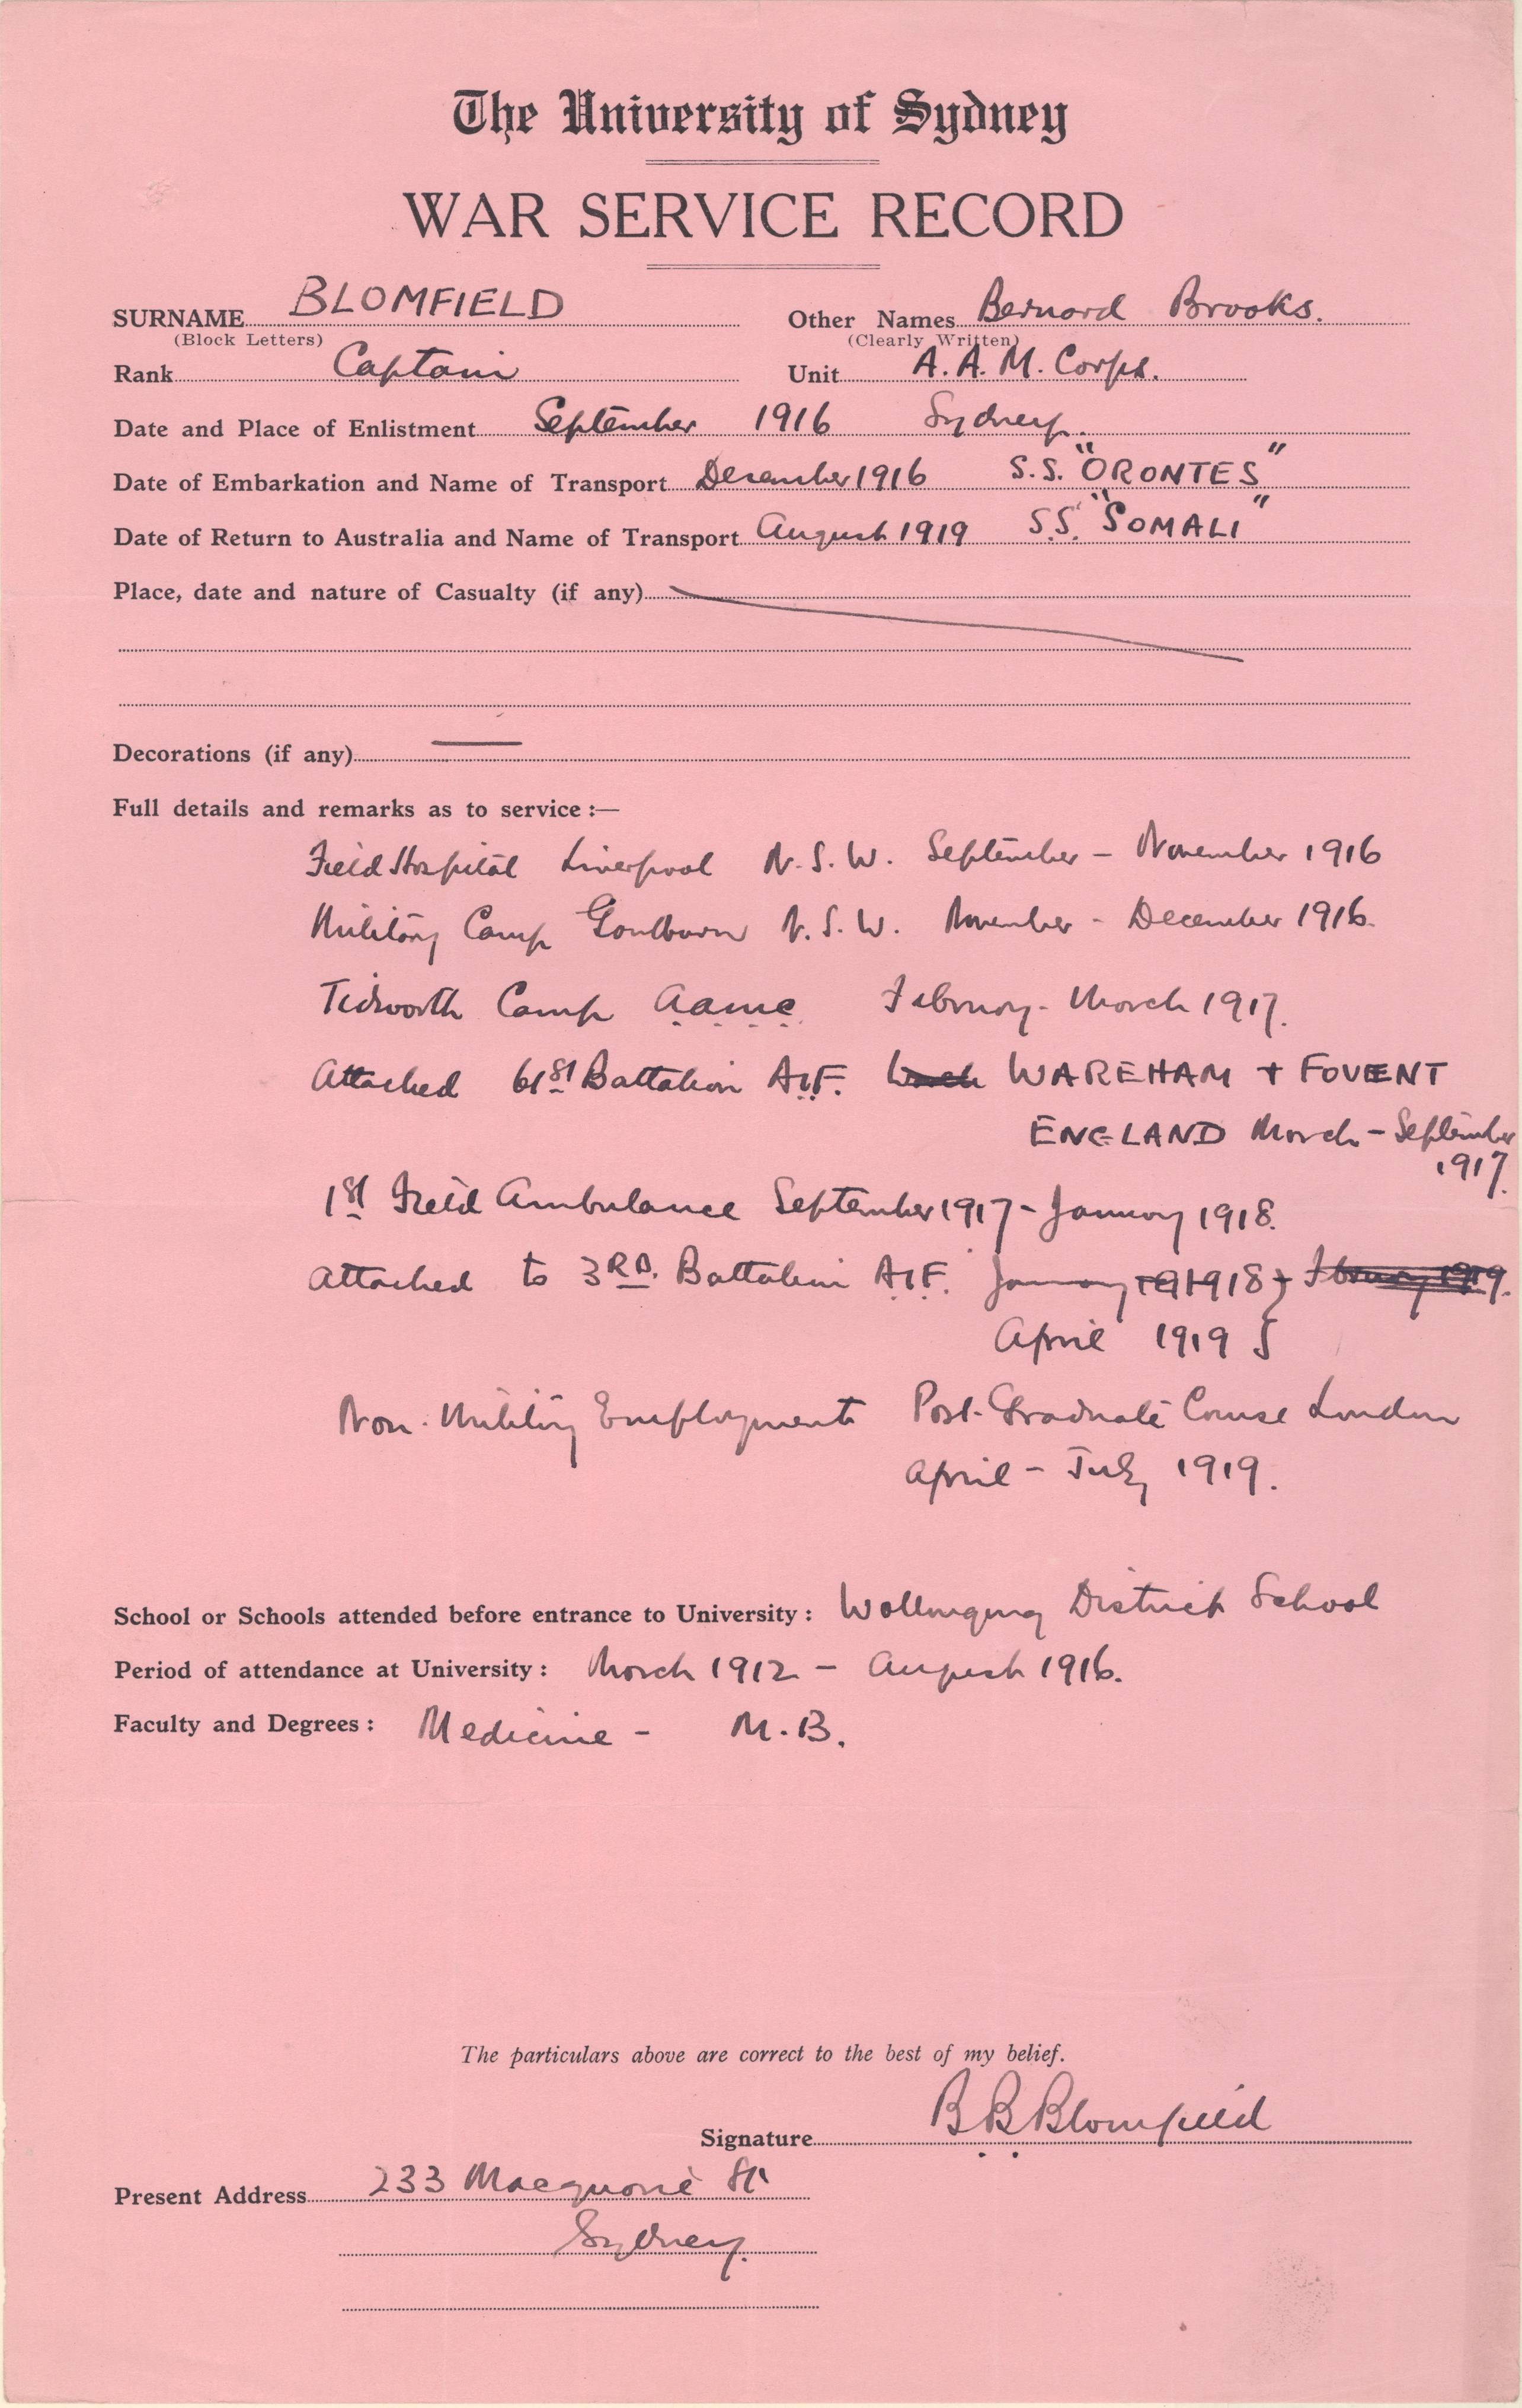 The University of Sydney
WAR SERVICE RECORD
SURNAME BLOMFIELD Other Names Bernard Brooks.
(Block Letters) (Clearly Written)
Rank Captain Unit A. A. M. Corps.
Date and Place of Enlistment September 1916 Sydney.
Date of Embarkation and Name of Transport December 1916 S.S. "ORONTES"
Date of Return to Australia and Name of Transport August 1919 S.S. "SOMALI"
Place, date and nature of Casualty (if any)
Decorations (if any) —
Full details and remarks as to service :—
Field Hospital Liverpool N.S.W. September – November 1916
Military Camp Goulburn N.S.W. November - December 1916.
Tidworth Camp AAMC February - March 1917.
Attached 61st Battalion A.I.F. WAREHAM + FOVENT
ENGLAND March – September
1917.
1st Field Ambulance September 1917 - January 1918.
Attached to 3RD. Battalion A.I.F. January 1918 }
April 1919 }
Non-Military Employment Post-Graduate Course London
April – July 1919.
School or Schools attended before entrance to University : Wollongong District School
Period of attendance at University : March 1912 – August 1916.
Faculty and Degrees : Medicine - M.B.
The particulars above are correct to the best of my belief.
Signature B B Blomfield
Present Address 233 Macquarie St
Sydney.